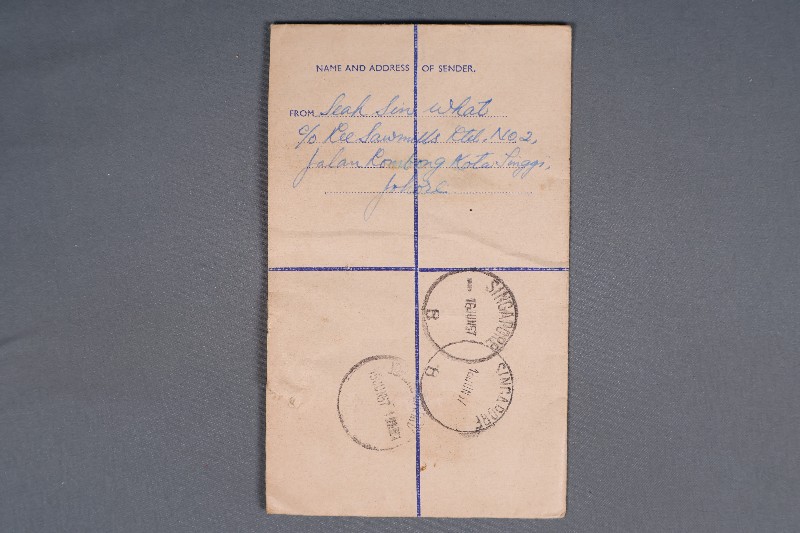 NAME AND ADDRESS OF SENDER.
FROM Seah Sin What
c/o Kee Sawmills Ltd. No. 2,
Jalan Rombong Kota Tinggi,
Johore
SINGAPORE
16 JUN 57
B
SINGAPORE
16 JUN 57
B
15 JUN 57